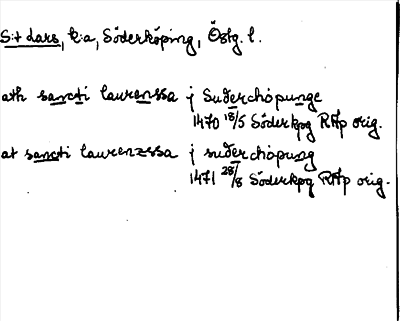 S:t Lars, k:a, Söderköping, Östg. l.
ath sancti laurenssa j Suderchöpunge
1470 18/5 Söderkpg RAp orig.
at sancti laurenzssa j suderchöpung
1471 28/8 Söderkpg RAp orig.